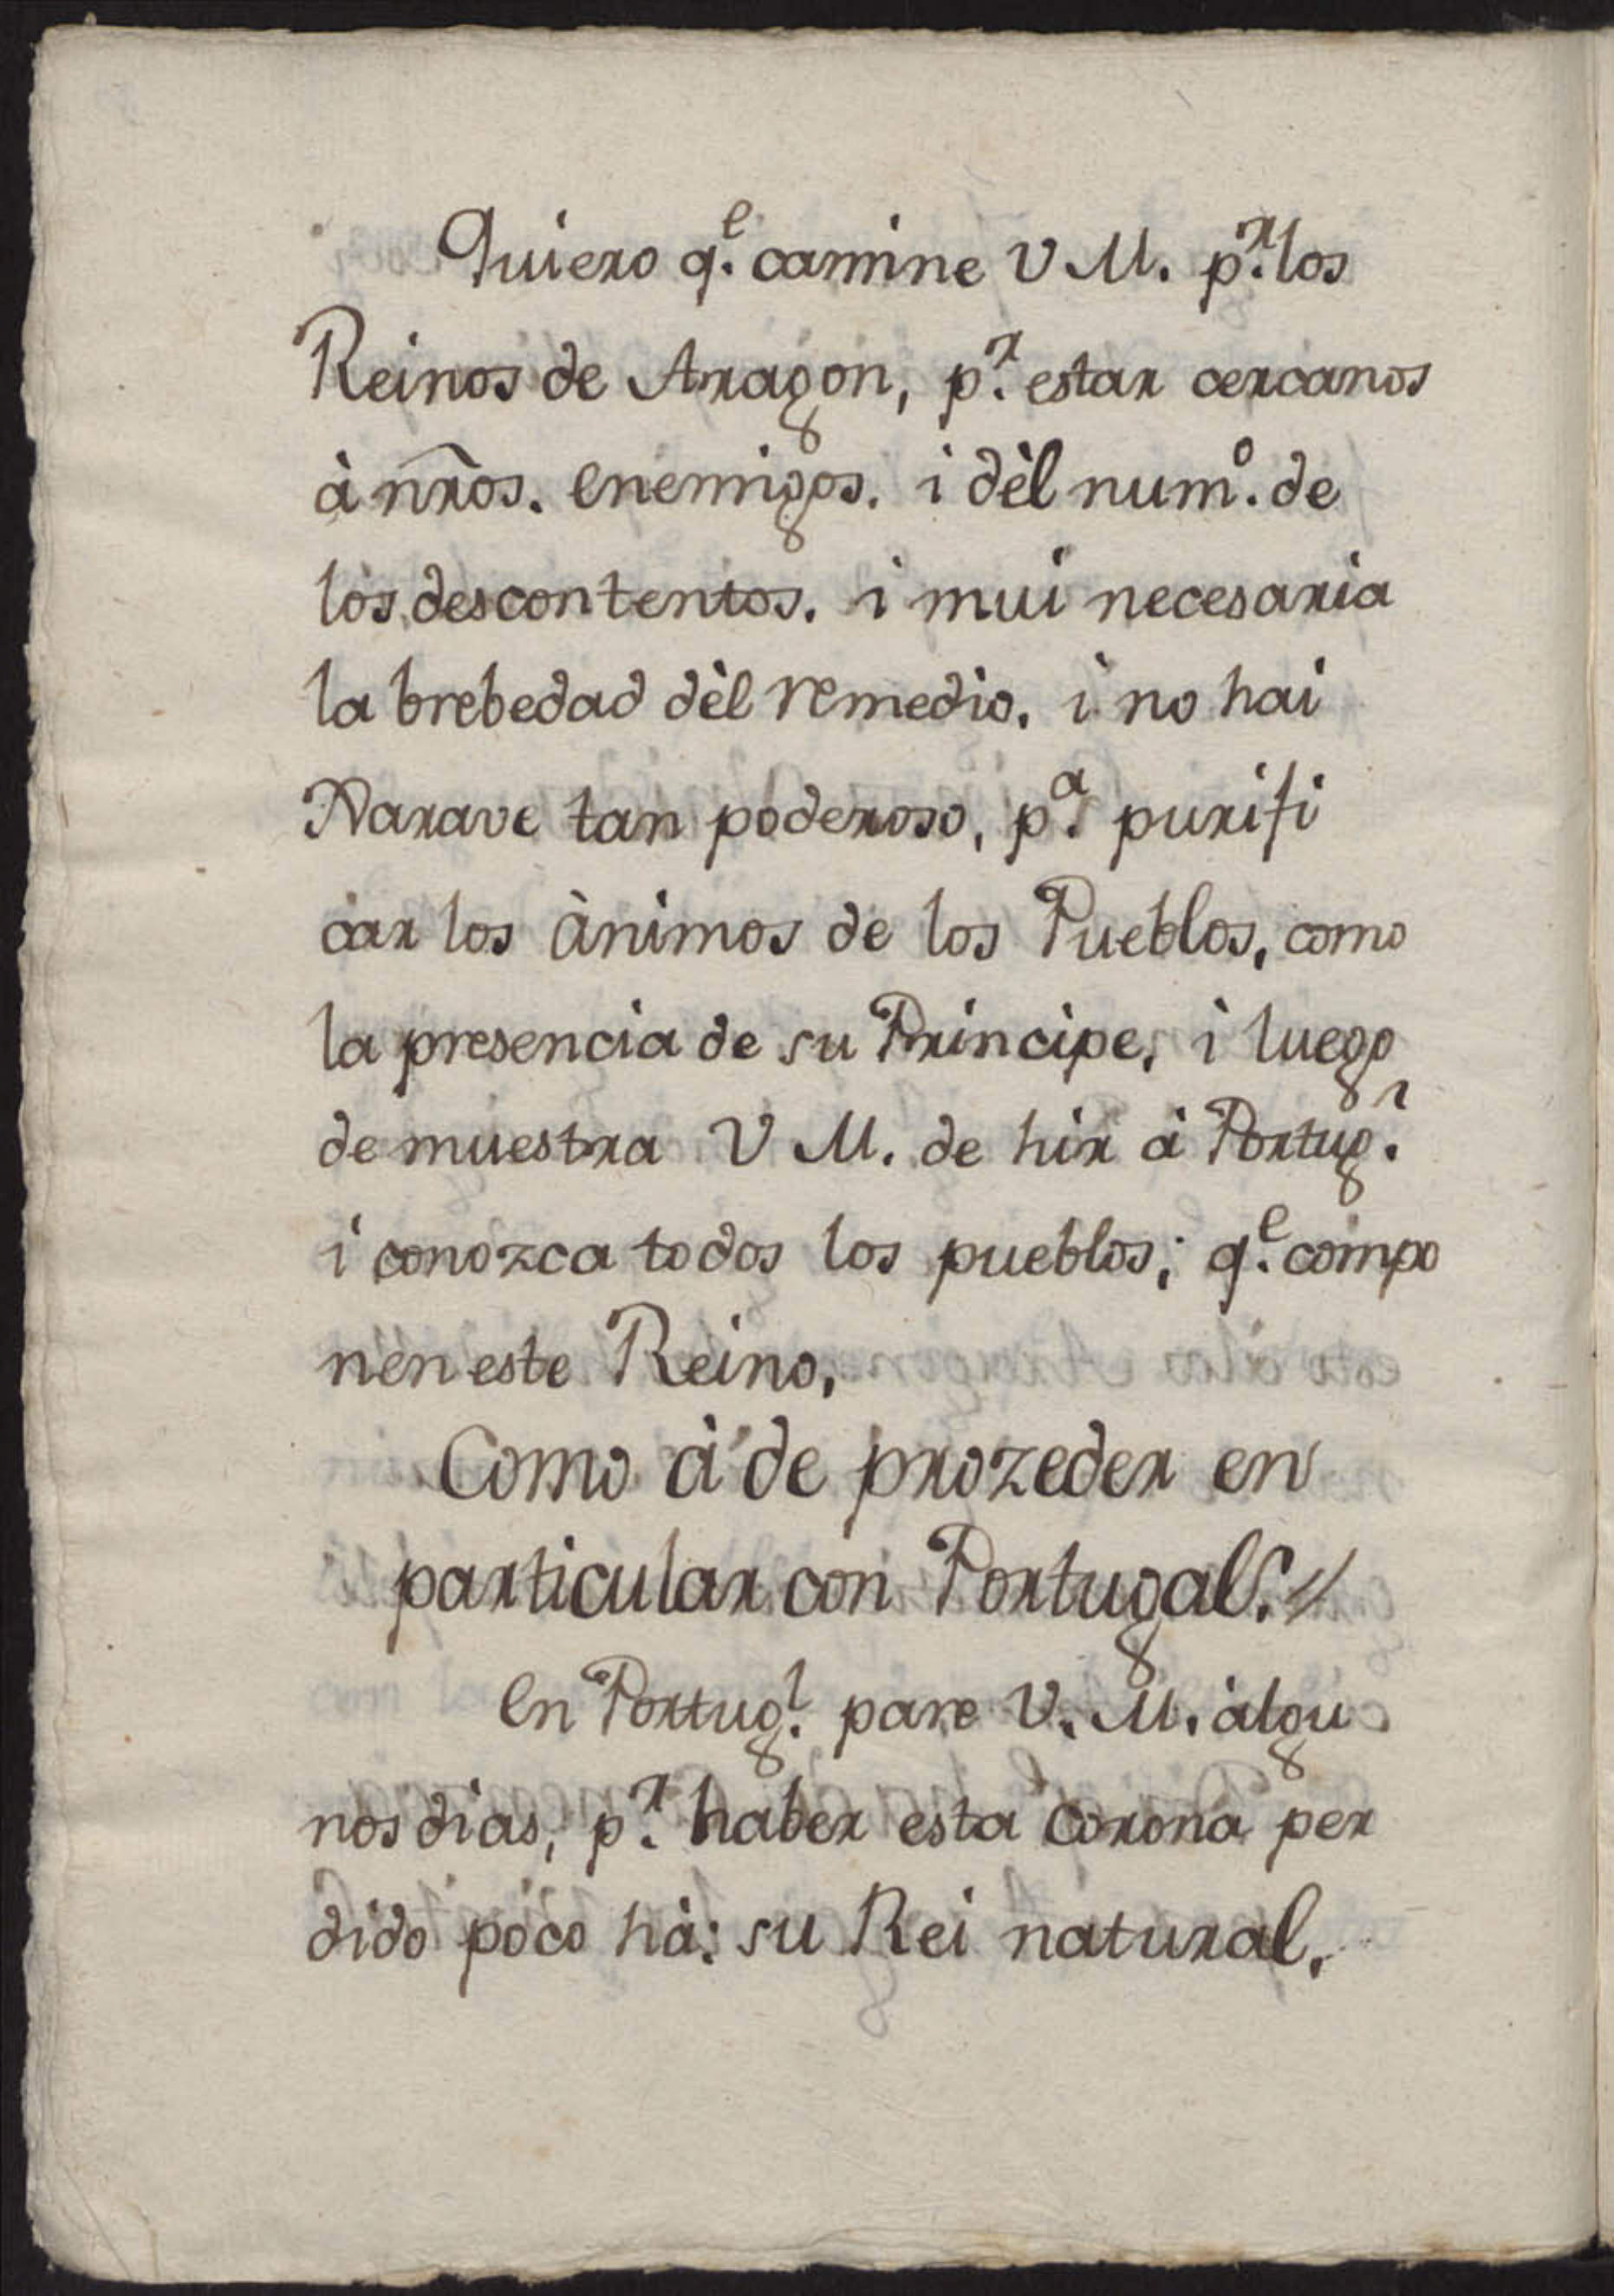 Quiero q.e camine V M. p.r los
Reinos de Aragon, p.r estar cercanos
à nr̃os. enemigos. i dèl num.o de
los descontentos. i mui necesaria
la brebedad dèl remedio. i no hai
Xarave tan poderoso, p.a purifi
car los ànimos de los Pueblos, como
la presencia de su Principe, i luego
de muestra V M. de hir à Portug.l
i conozca todos los pueblos; q.e compo
nen este Reino,
Como à de prozeder en
particular con Portugal. //
En Portug.l pare V. M. àlgu
nos dias, p.r haber esta corona per
dido poco hà: su Rei natural.